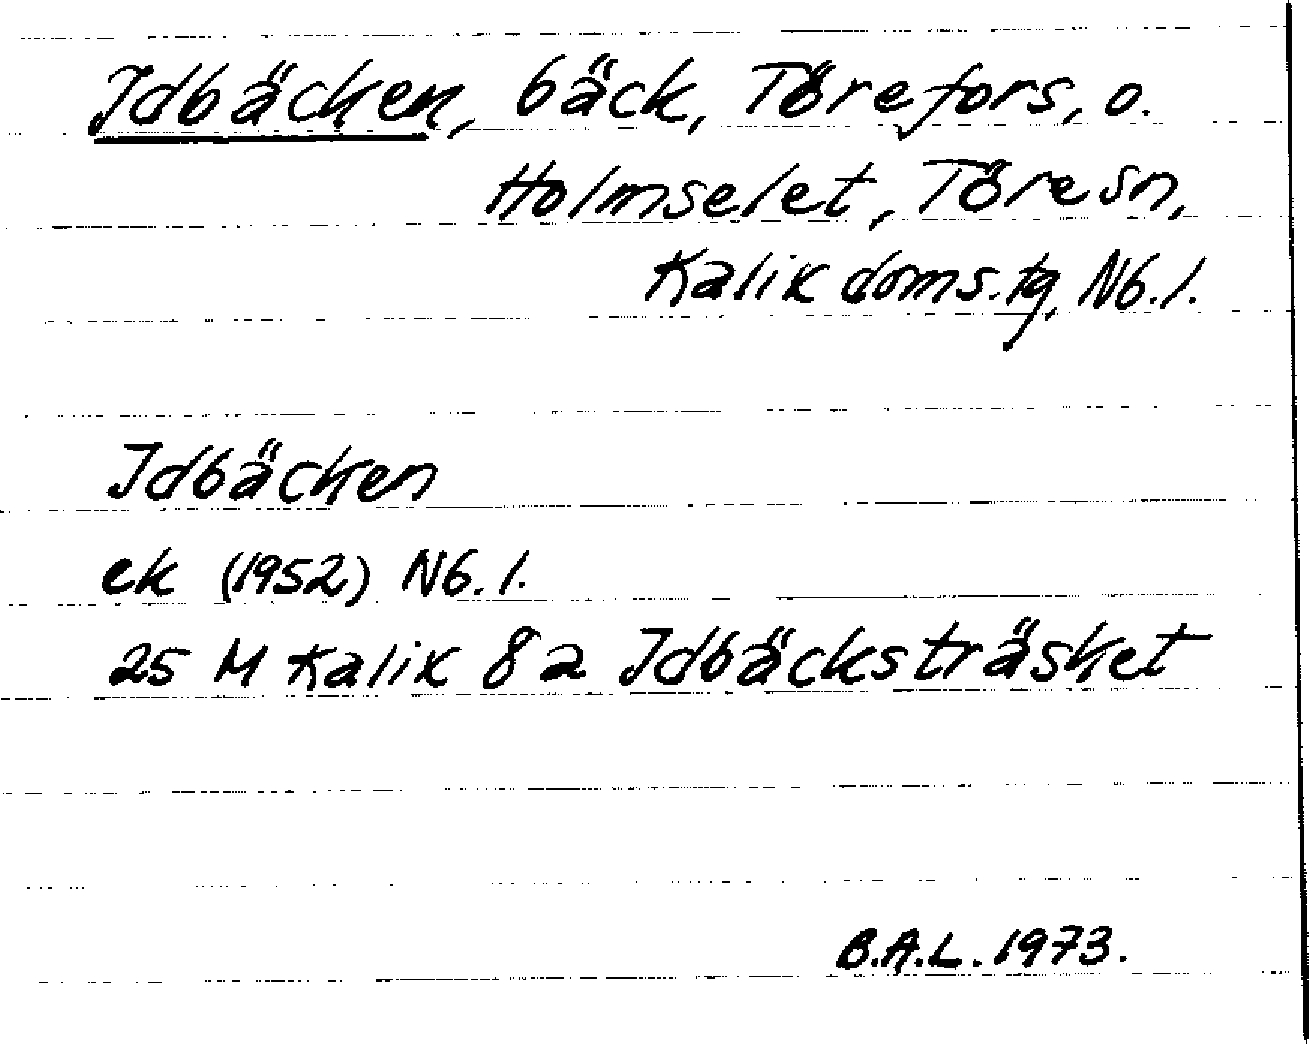 Idbäcken, bäck, Törefors, o.
Holmselet, Töre sn,
Kalix doms.tg, Nb.l.
Idbäcken
ek (1952) Nb.l.
25 M Kalix 8a Idbäcksträsket
B.A.L. 1973.